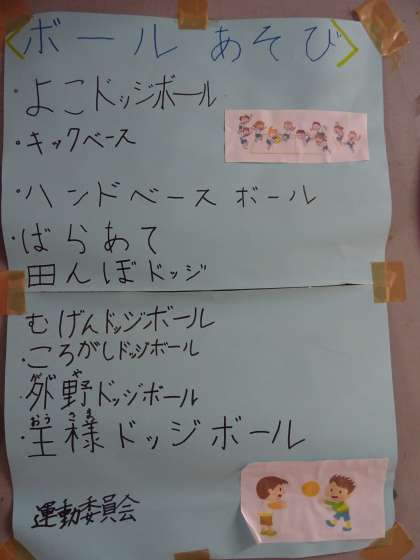 <ボールあそび>
・よこドッジボール
・キックベース
・ハンドベースボール
・ばらあて
田んぼドッジ
むげんドッジボール
・ころがしドッジボール
がいや
外野ドッジボール
おうさま
・王様ドッジボール
運動委員会